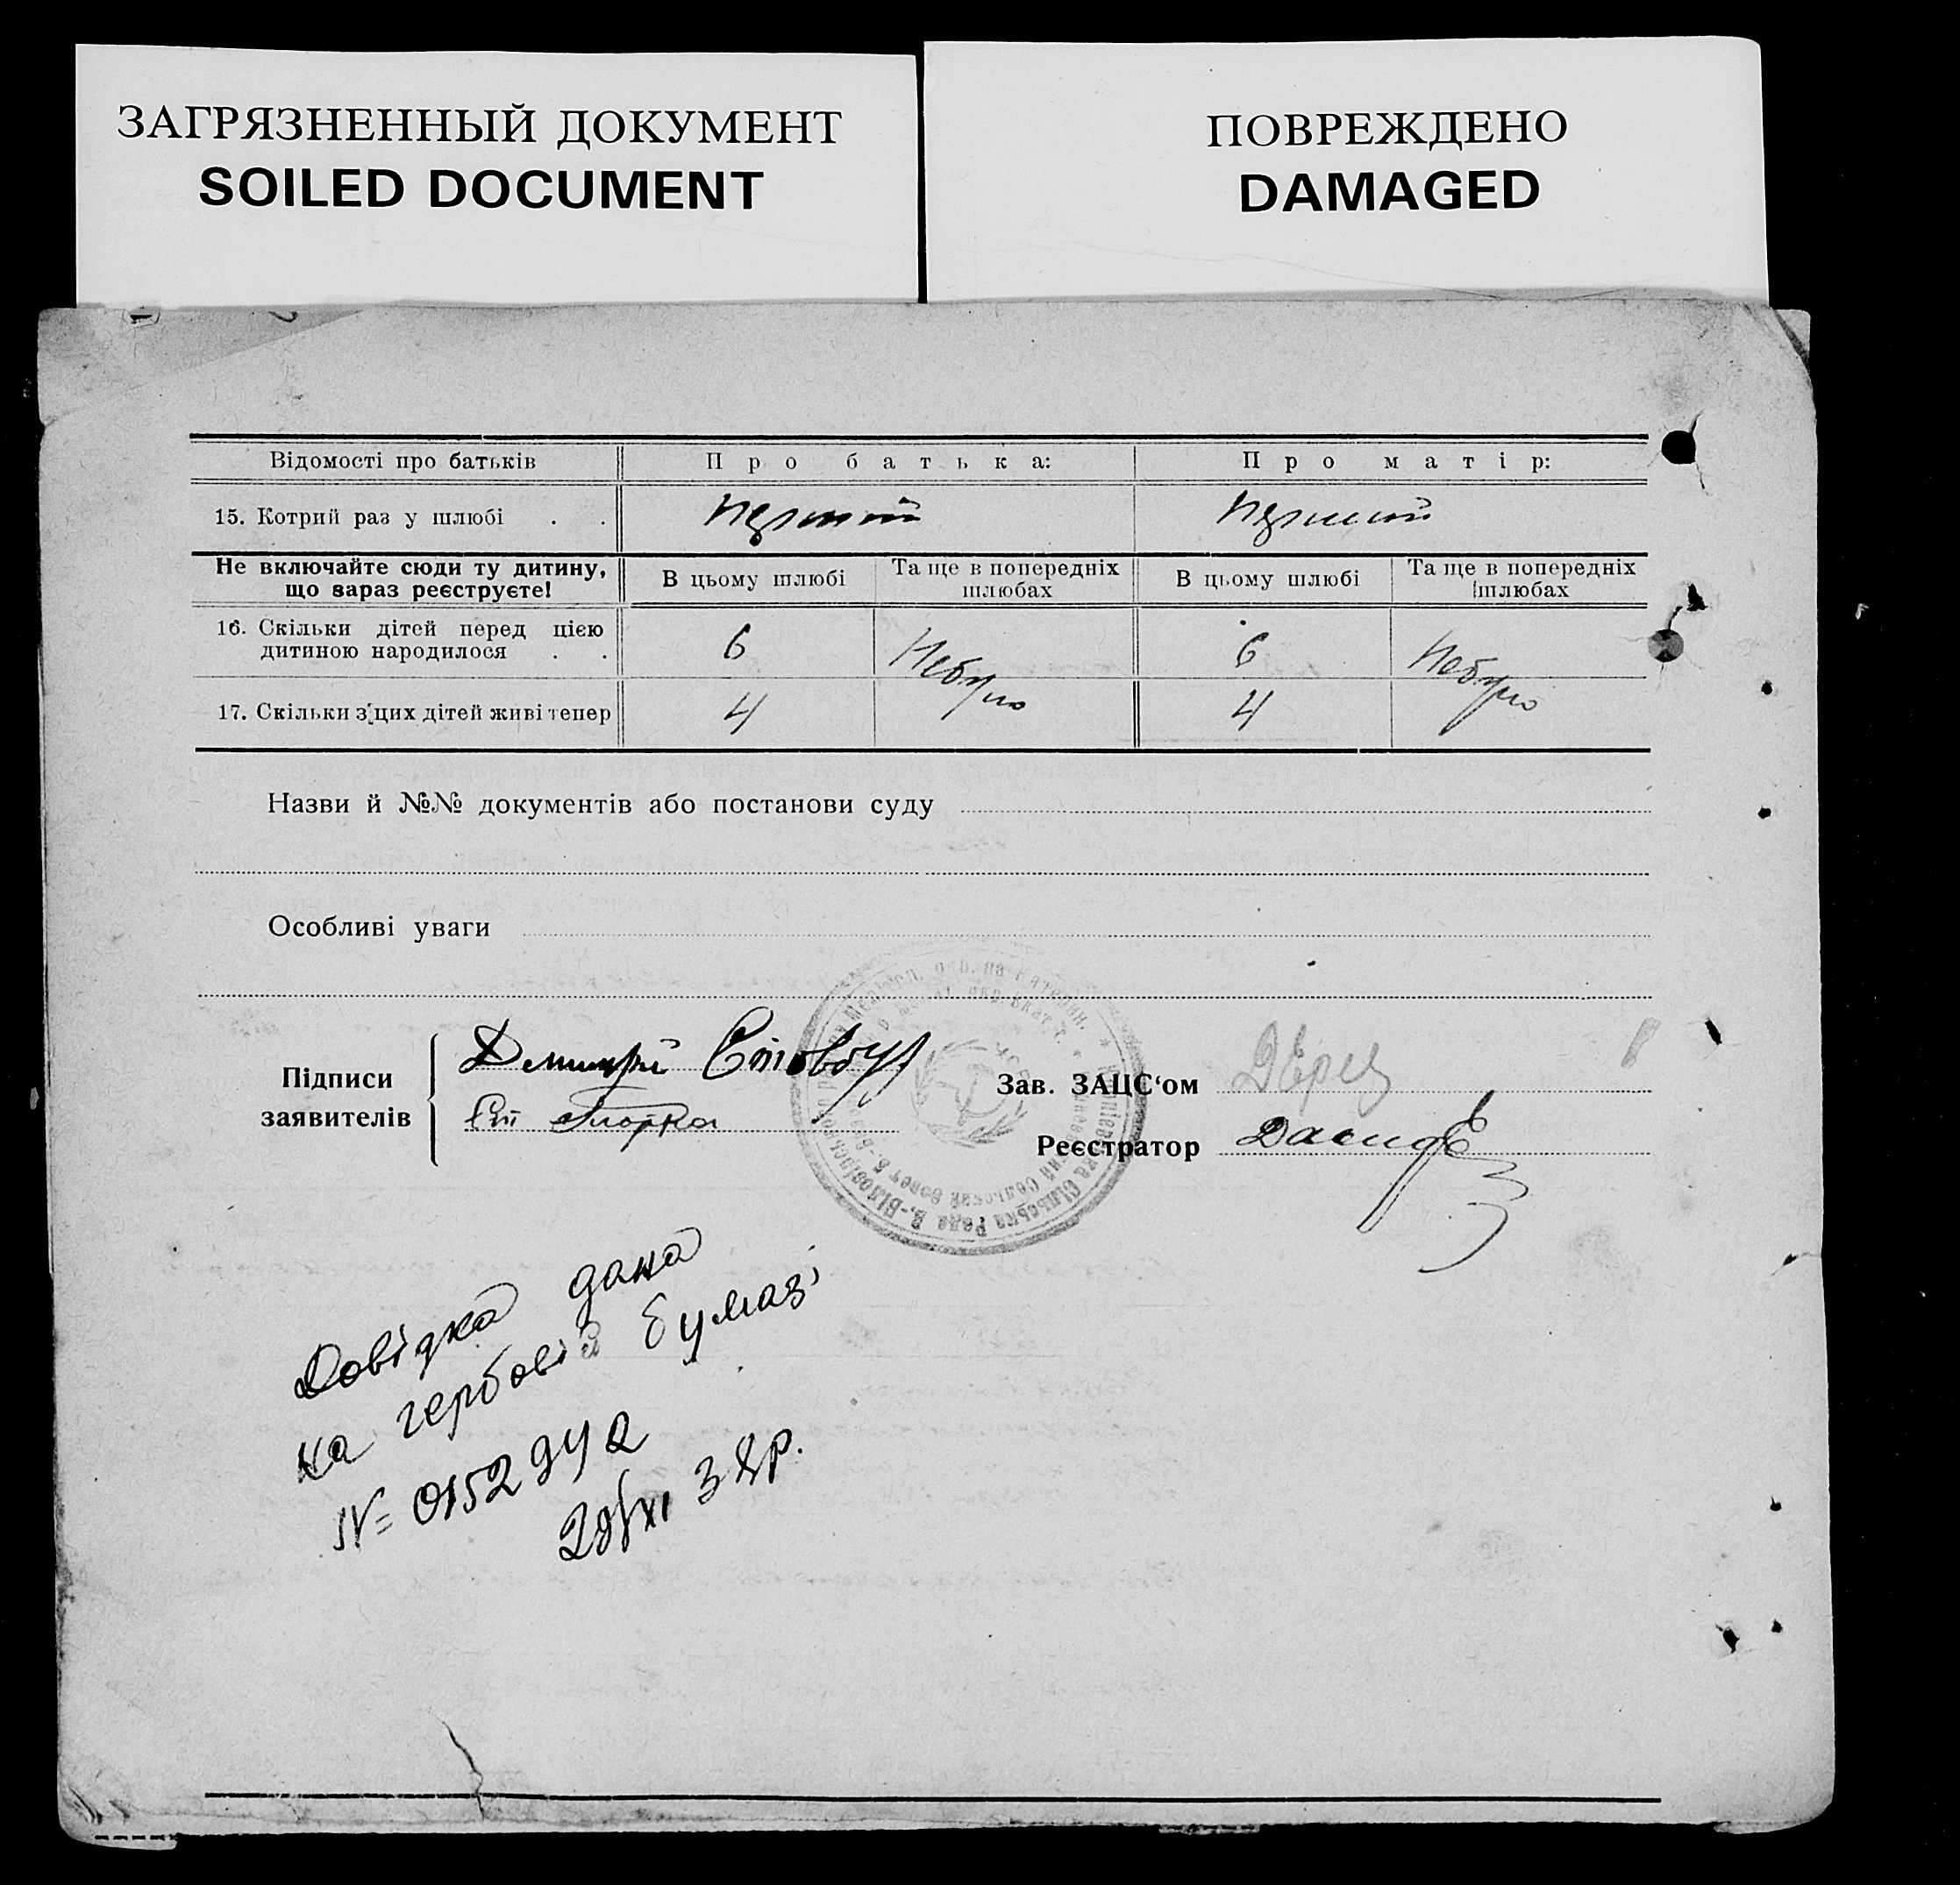 ЗАГРЯЗНЕННЫЙ ДОКУМЕНТ
SOILED DOCUMENT
ПОВРЕЖДЕНО
DAMAGED
Відомості про батьків Про батька: Про матір:
15. Котрий раз у шлюбі . . перший перший
Не включайте сюди ту дитину, що зараз реєструєте! В цьому шлюбі Та ще в попередніх шлюбах В цьому шлюбі Та ще в попередніх шлюбах
16. Скільки дітей перед цією дитиною народилося . . 6 Небуло 6 Небуло
17. Скільки з цих дітей живі тепер 4 4
Назви й №№ документів або постанови суду
Особливі уваги
Підписи заявителів
Дмитрій
Зав. ЗАЦС‘ом
Реєстратор
Довідка дана
на гербовій бумазі
№ 0152942